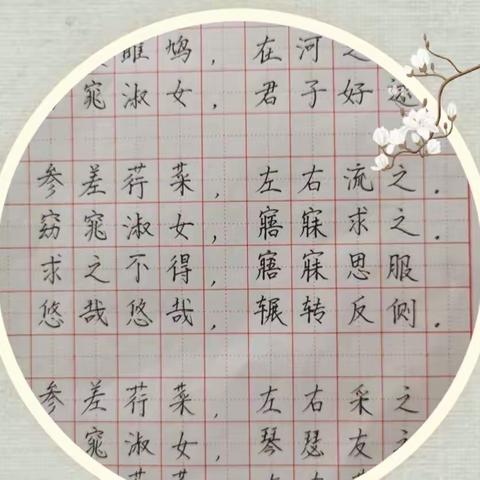 雎鸠，在河之
窕淑女，君子好逑
参差荇菜，左右流之．
窈窕淑女，寤寐求之．
求之不得，寤寐思服
悠哉悠哉，辗转反侧．
参差荇菜，左右采之
窕淑女，琴瑟友之